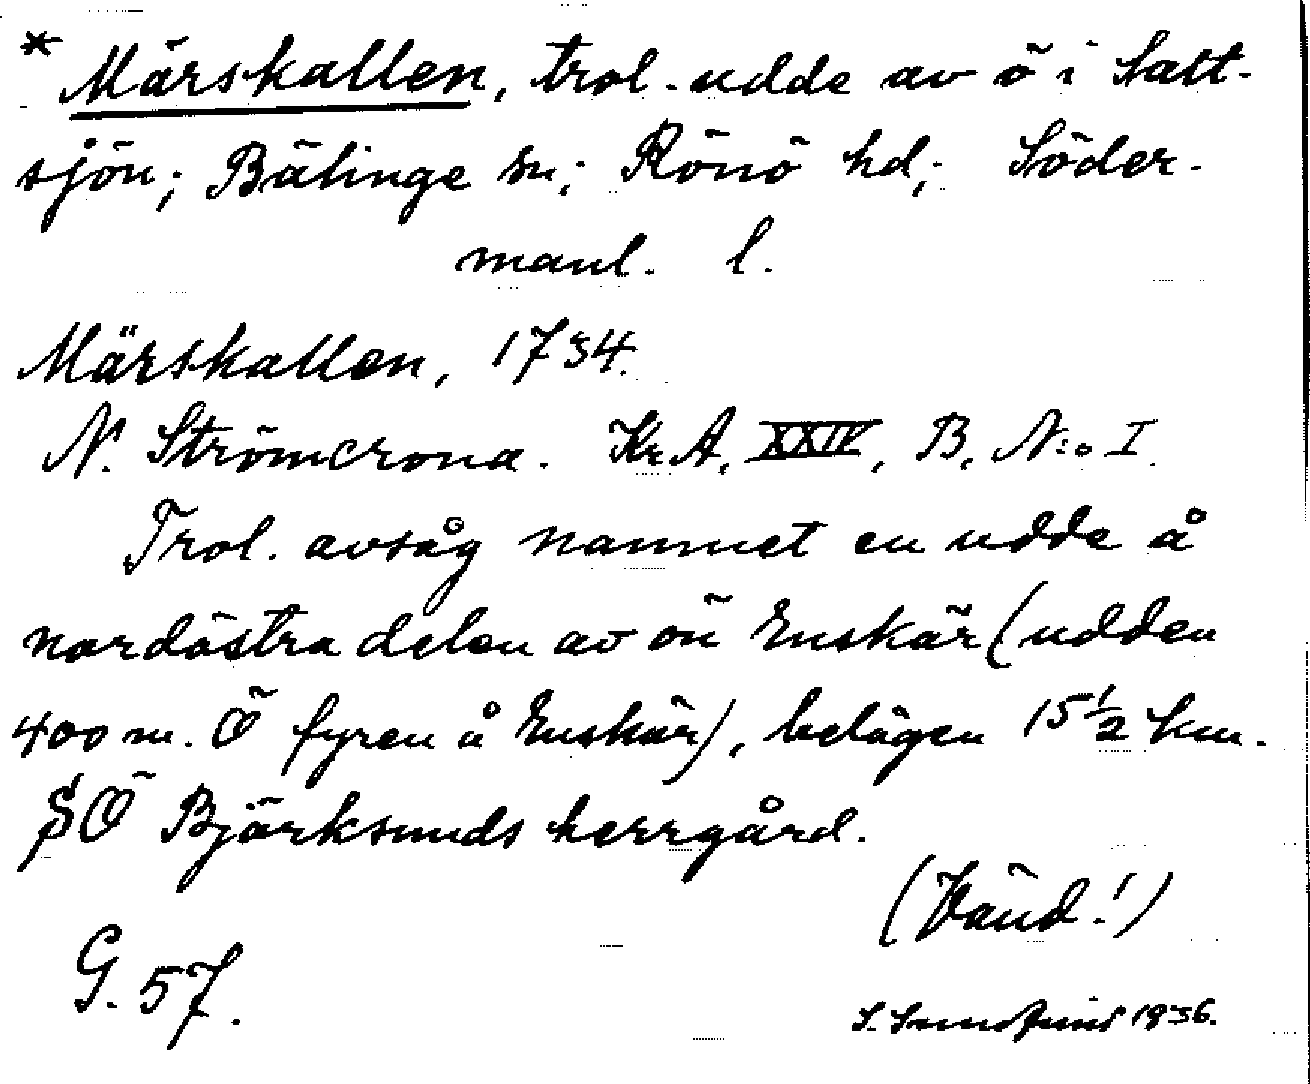 * Märskallen, trol. udde av ö i Salt-
sjön; Bälinge sn; Rönö hd; Söder-
manl. l.
Märskallen, 1734.
N. Strömcrona. Kr.A, XXIV, B, N:o I.
Trol. avsåg namnet en udde å
nordöstra delen av ön Enskär (udden
400 m. Ö fyren å Enskär), belägen 15 1/2 km.
SÖ Björksunds herrgård.
(Vänd!)
G. 57.
S. 1936.